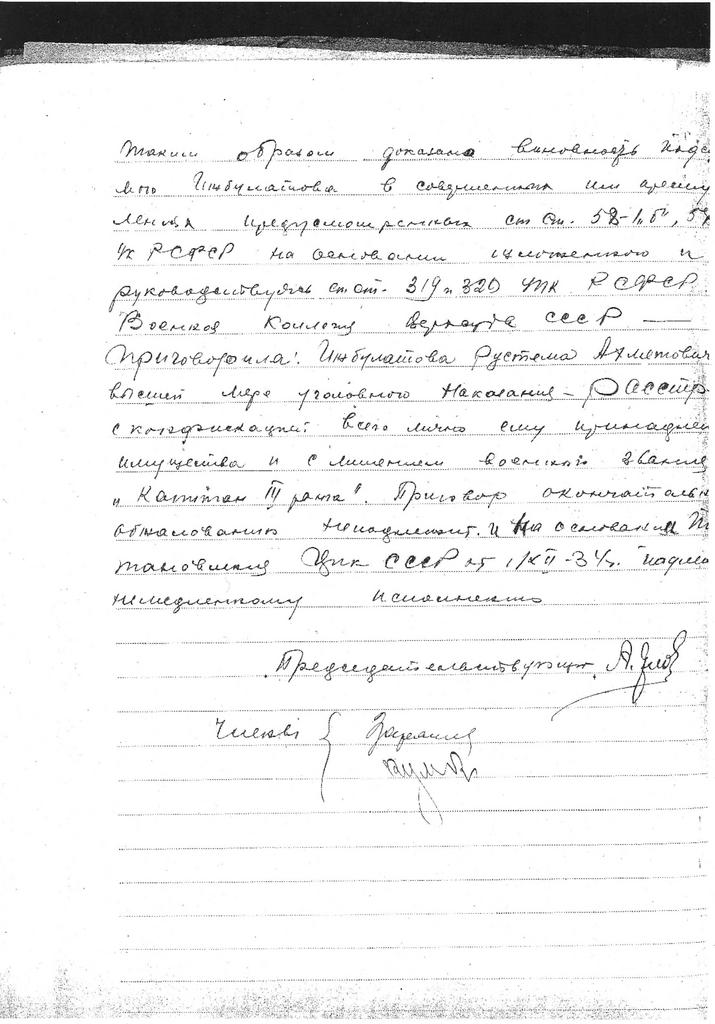 Таким образом доказана виновность подс
мого Инбулатова в совершенных им престу
лениях предусмотренных ст ст. 58-1 "б", 58
УК РСФСР на основании изложенного и
руководствуясь ст ст. 319 и 320 УПК РСФСР
Военная Коллегия Верхсуда СССР —
Приговорила: Инбулатова Рустема Ахметович
высшей мере уголовного наказания – Расстр
с конфискацией всего лично ему принадлеж
имущества и с лишением военного звания
"Капитан III ранга". Приговор окончательн
обжалованию неподлежит. и на основании По
тановления ЦИК СССР от 1/XII-34г. подле
немедленному исполнению
Председательствующий А. Орлов
Члены
Зарянов